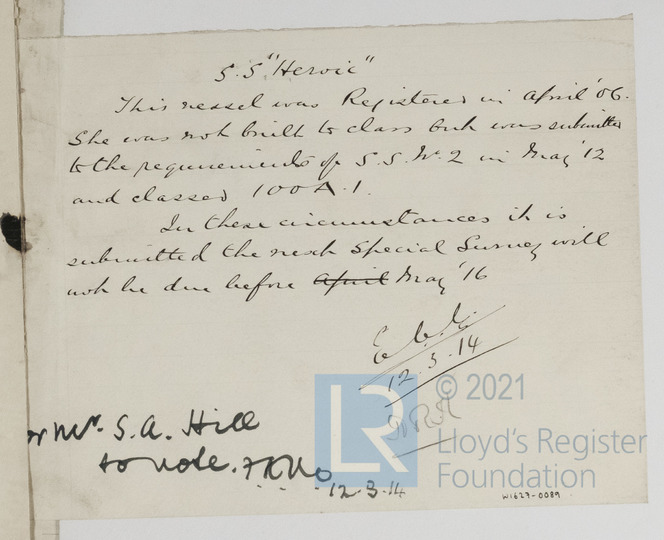 S.S "Heroic"
This vessel was Registered in April '06.
She was not built to class but was submitted
to the requirements of S.S. No. 2 in May '12
and classed 100A.1.
In these circumstances it is
submitted the next Special Survey will
not be due before April May '16
12.3.14
© 2021
LR
Lloyd's Register
Foundation
Mr. S.A. Hill
to note.
12.3.14
W1627-0089